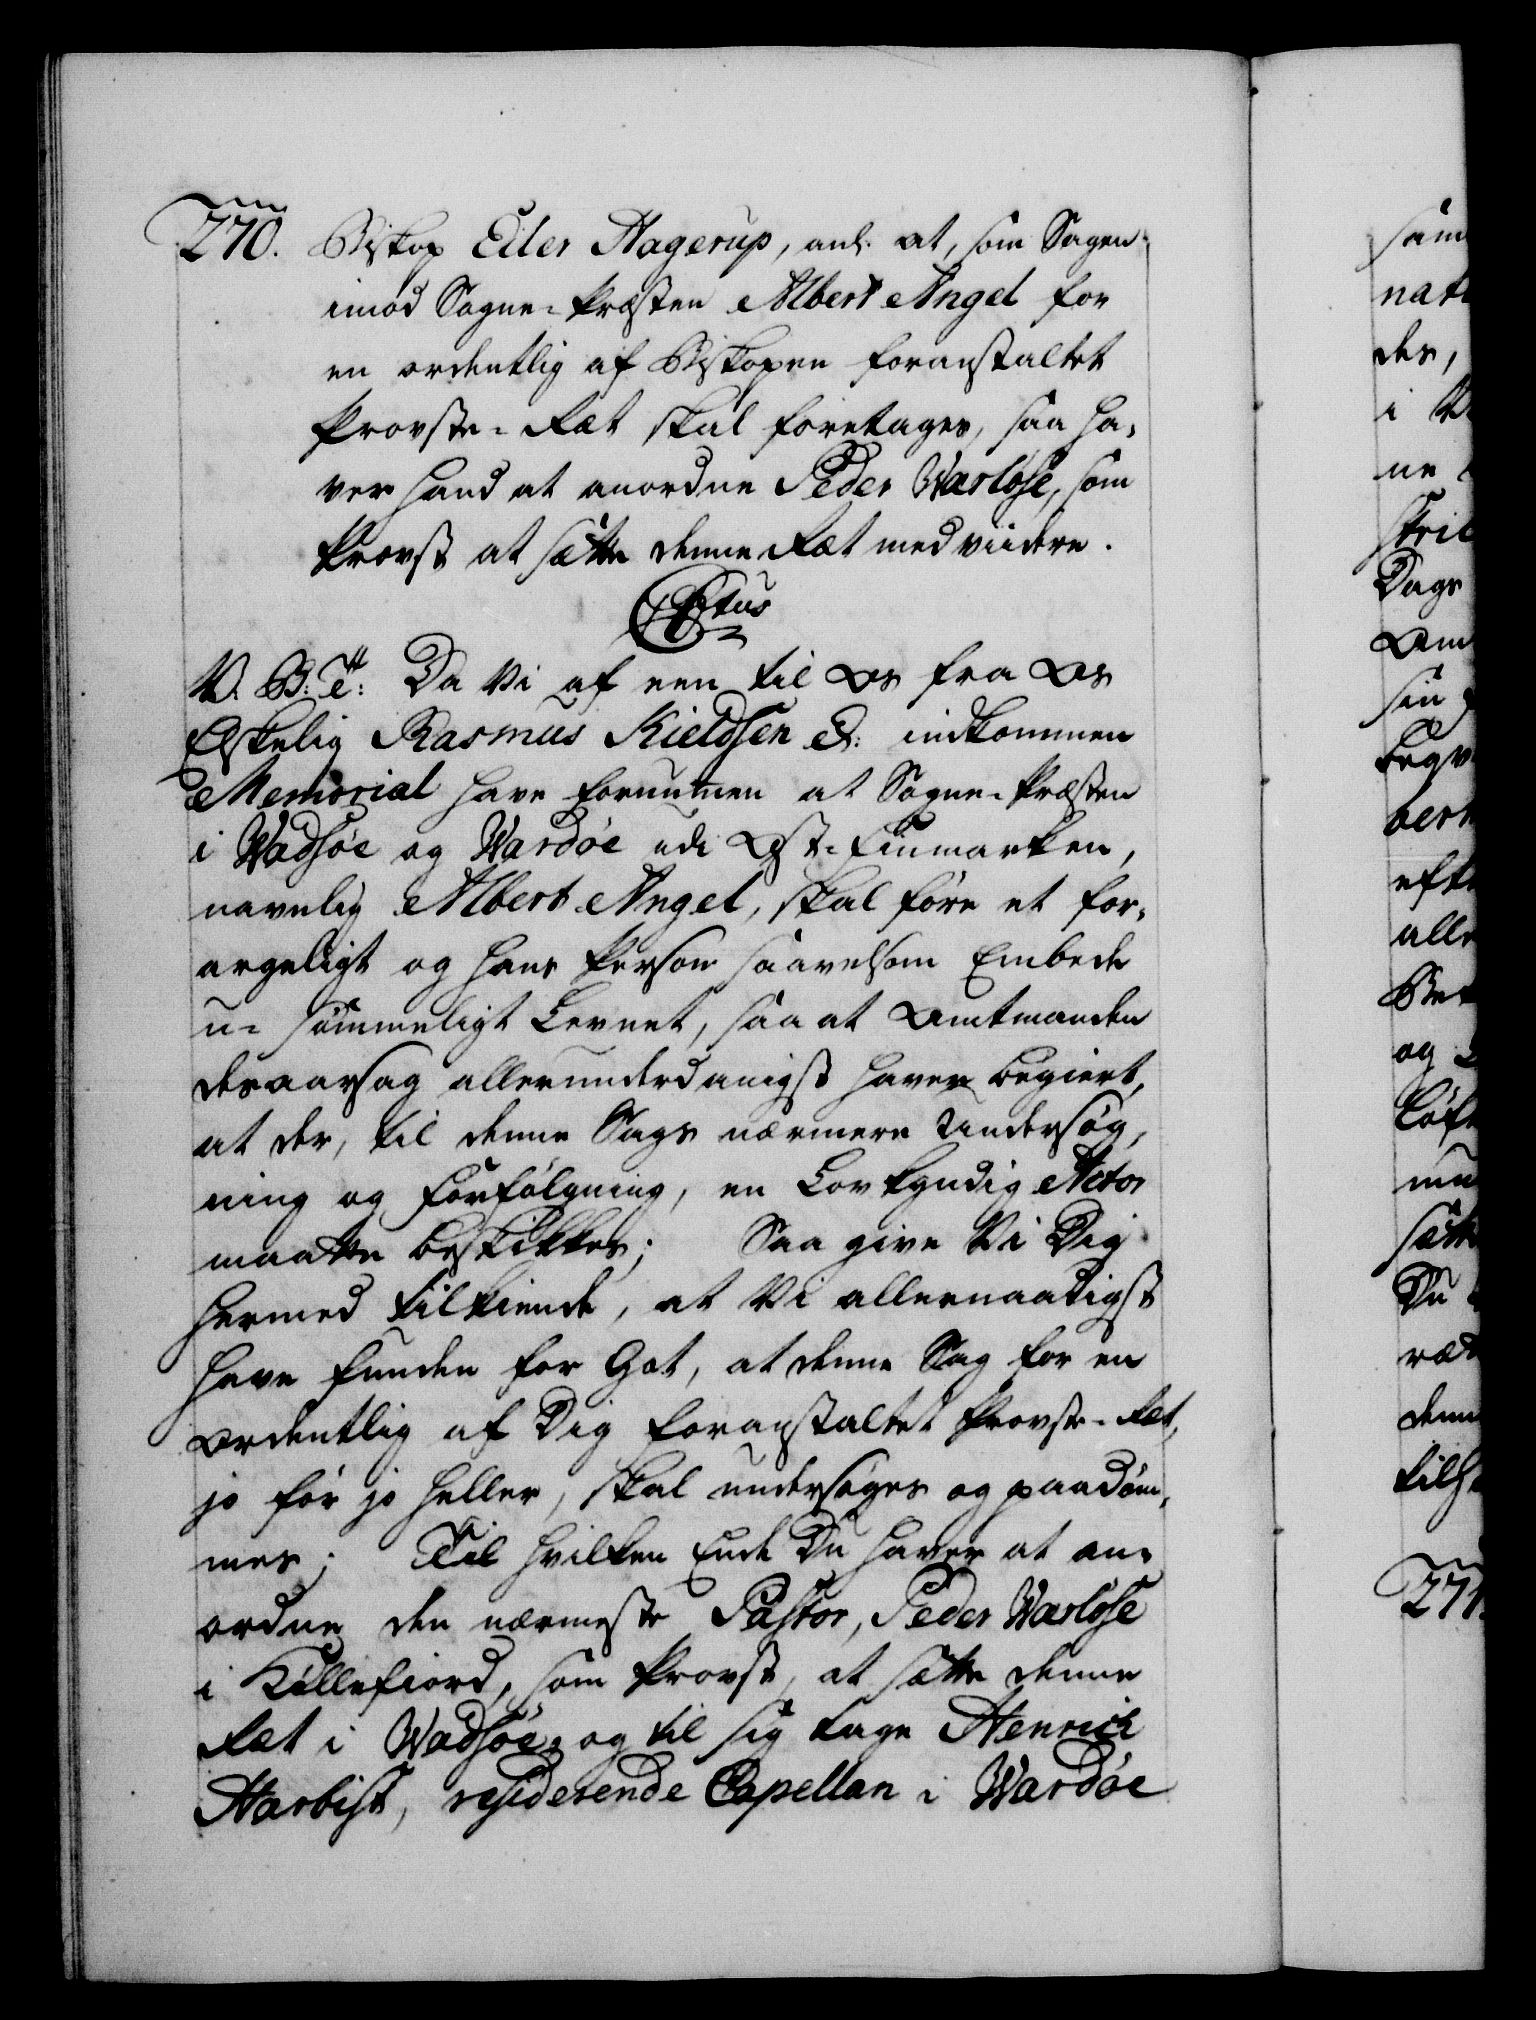 270. Biskop Eiler Hagerup, anl. at, som Sagen
imod Sogne-Præsten Albert Angel for
en ordentlig af Biskopen foranstaltet
Provste-Ræt skal foretages, saa ha-
ver hand at anordne Peder Warløse, som
Provst at sætte denne Ræt med viidere.
C 6tus
V. G. T: Da Vi af een til Os fra Os
Elskelig Rasmus Kieldsen &: indkommen
Memorial have fornummen at Sogne-Præsten
i Wadsøe og Wardøe udi Ost-Finmarken,
navnlig Albert Angel, skal føre et for-
argeligt og hans Person saavelsom Embede
u-sømmeligt Levnet, saa at Amtmanden
desaarsag allerunderdanigst haver begiert,
at der, til denne Sags nærmere Undersøg-
ning og Forfølgning, en Lovkyndig Actor
maatte beskikkes; Saa give Vi Dig
hermed tilkiende, at Vi allernaadigst
have funden for Got, at denne Sag for en
ordentlig af Dig foranstaltet Provste-Ret,
jo før jo heller, skal undersøges og paadøm-
mes; Til hvilken Ende Du haver at an-
ordne den nærmeste Pastor, Peder Warløse
i Kiøllefiord, som Provst, at sætte denne
Ræt i Wadsøe, og til sig tage Henrich
Harbist, residerende Capellan i Wardøe
nat
der,
i
ne
Dags
sin
eft
alle
og
Du
denn
271.